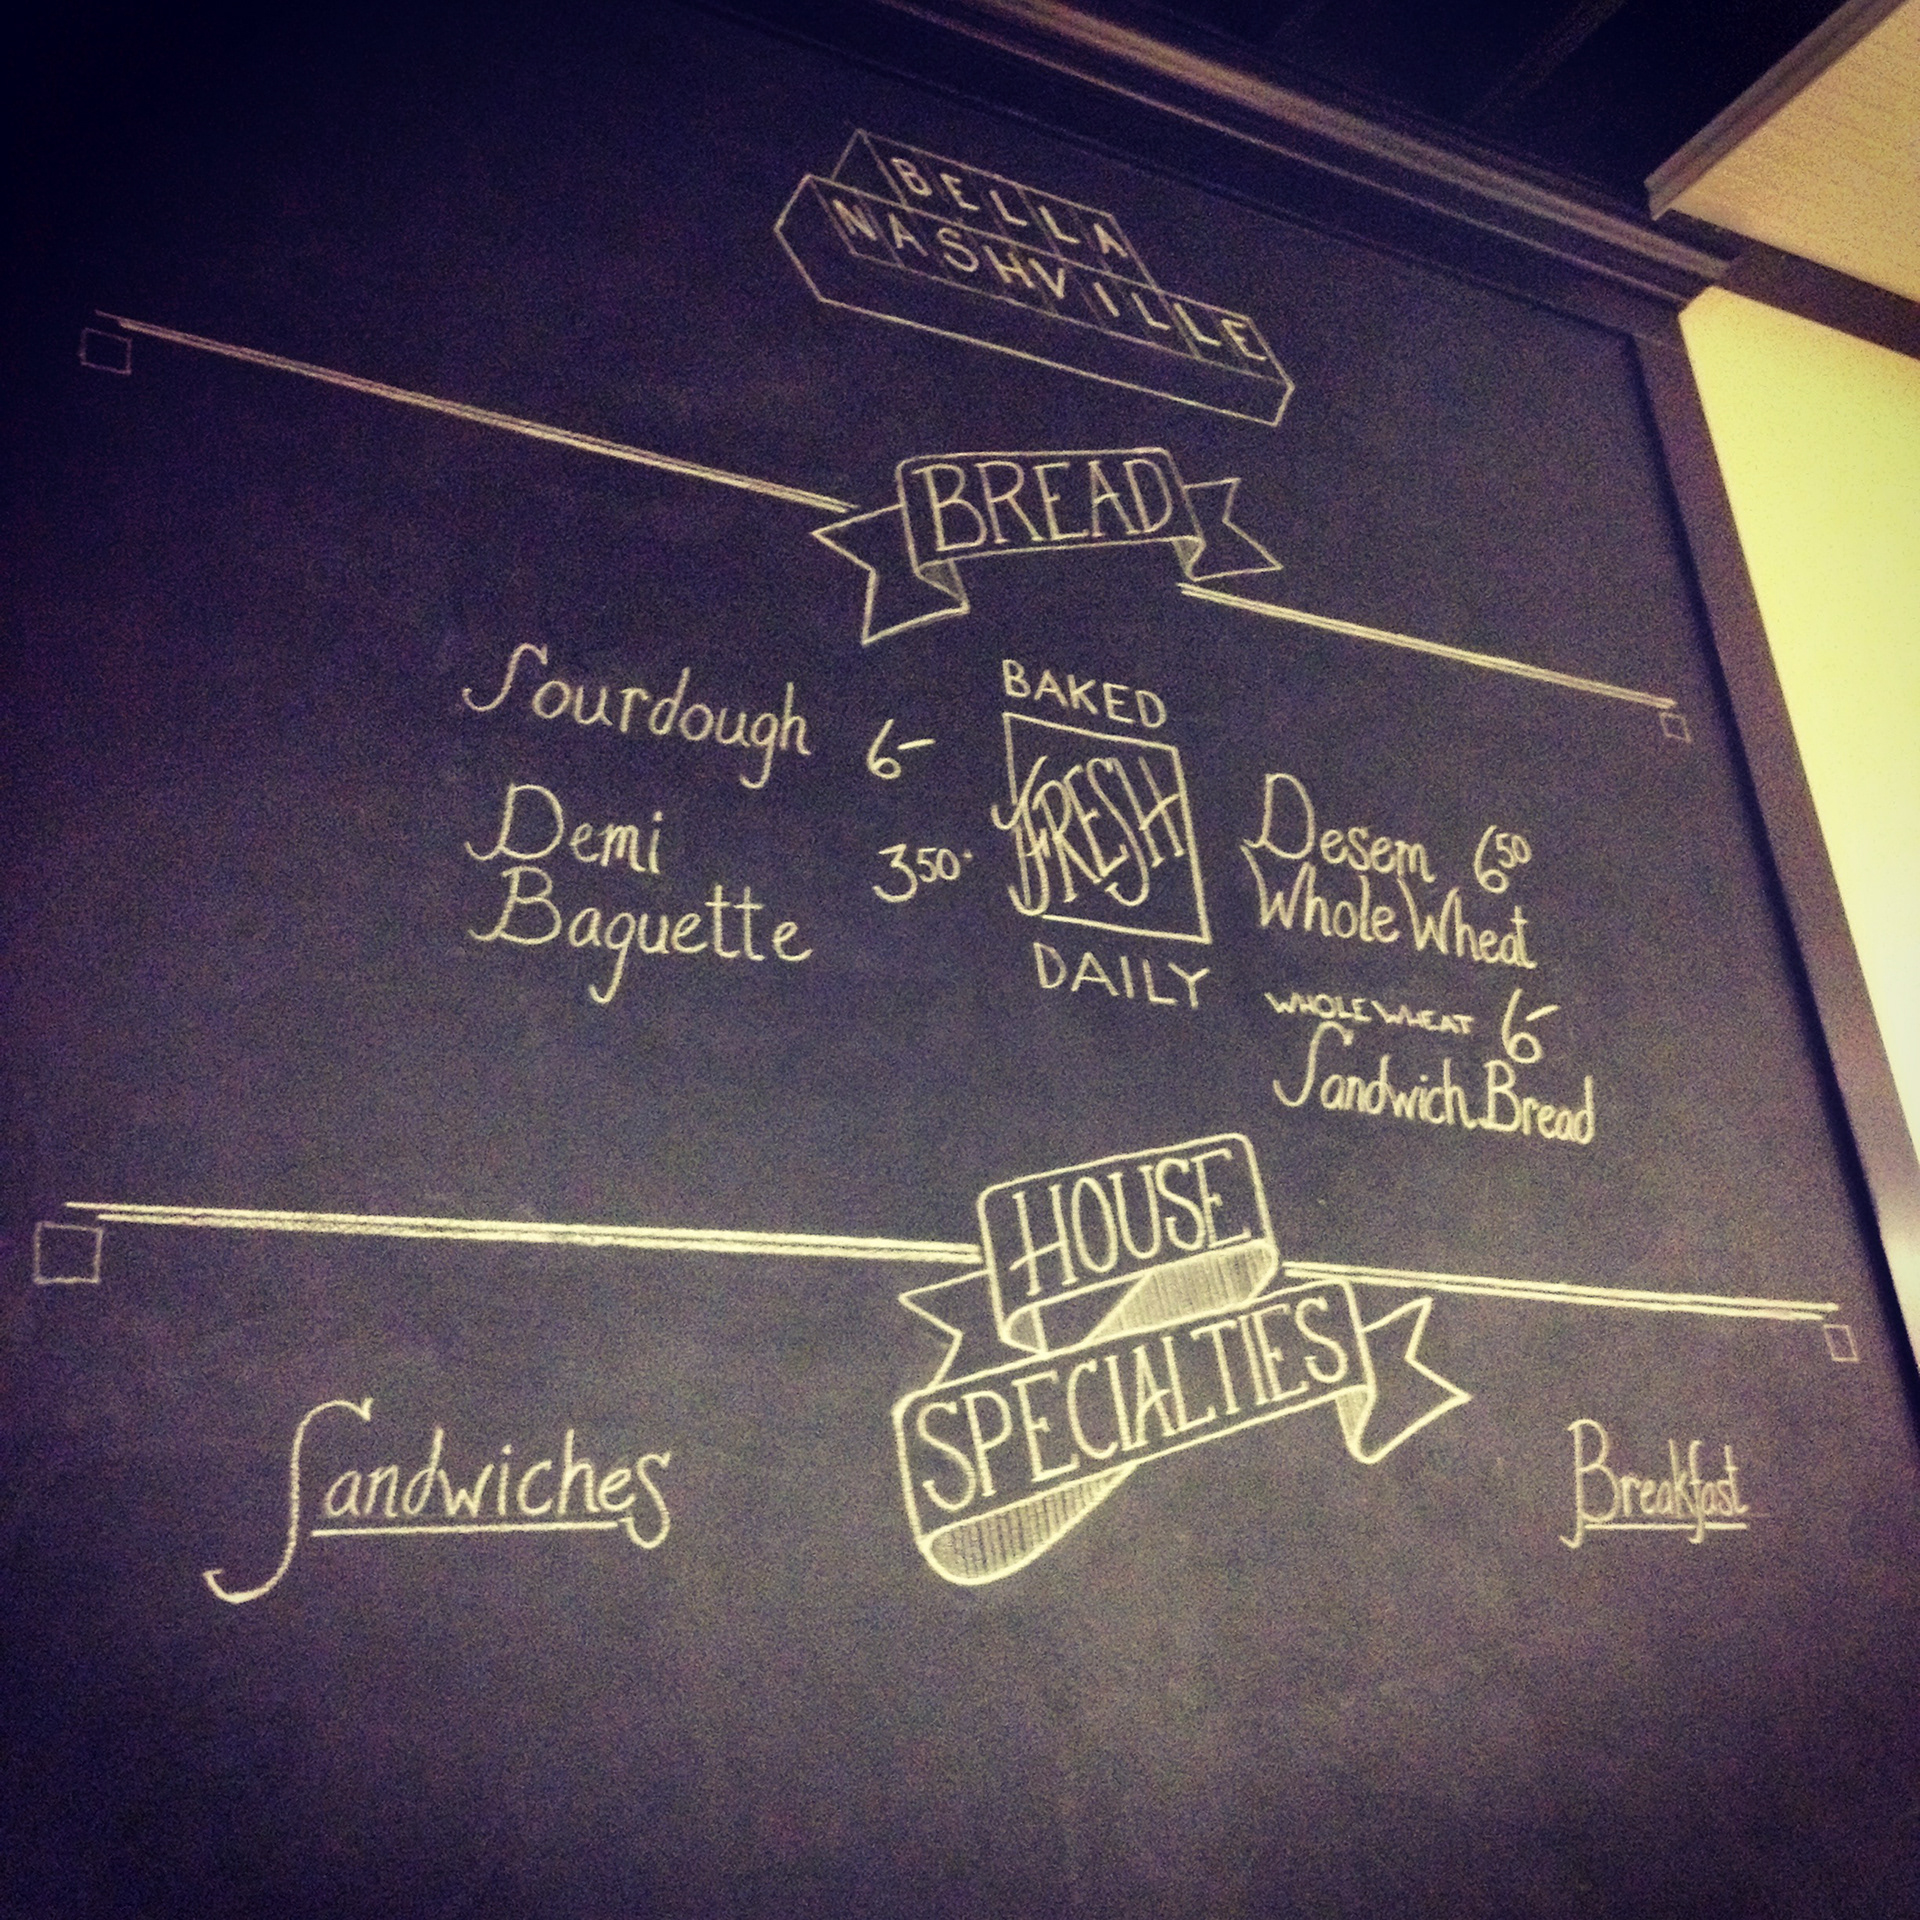 BELLA
NASHVILLE
BREAD
Sourdough 6-
Demi
Baguette 3 50
BAKED
FRESH
DAILY
Desem 6 50
Whole Wheat
WHOLE WHEAT 6-
Sandwich Bread
HOUSE
SPECIALTIES
Sandwiches
Breakfast